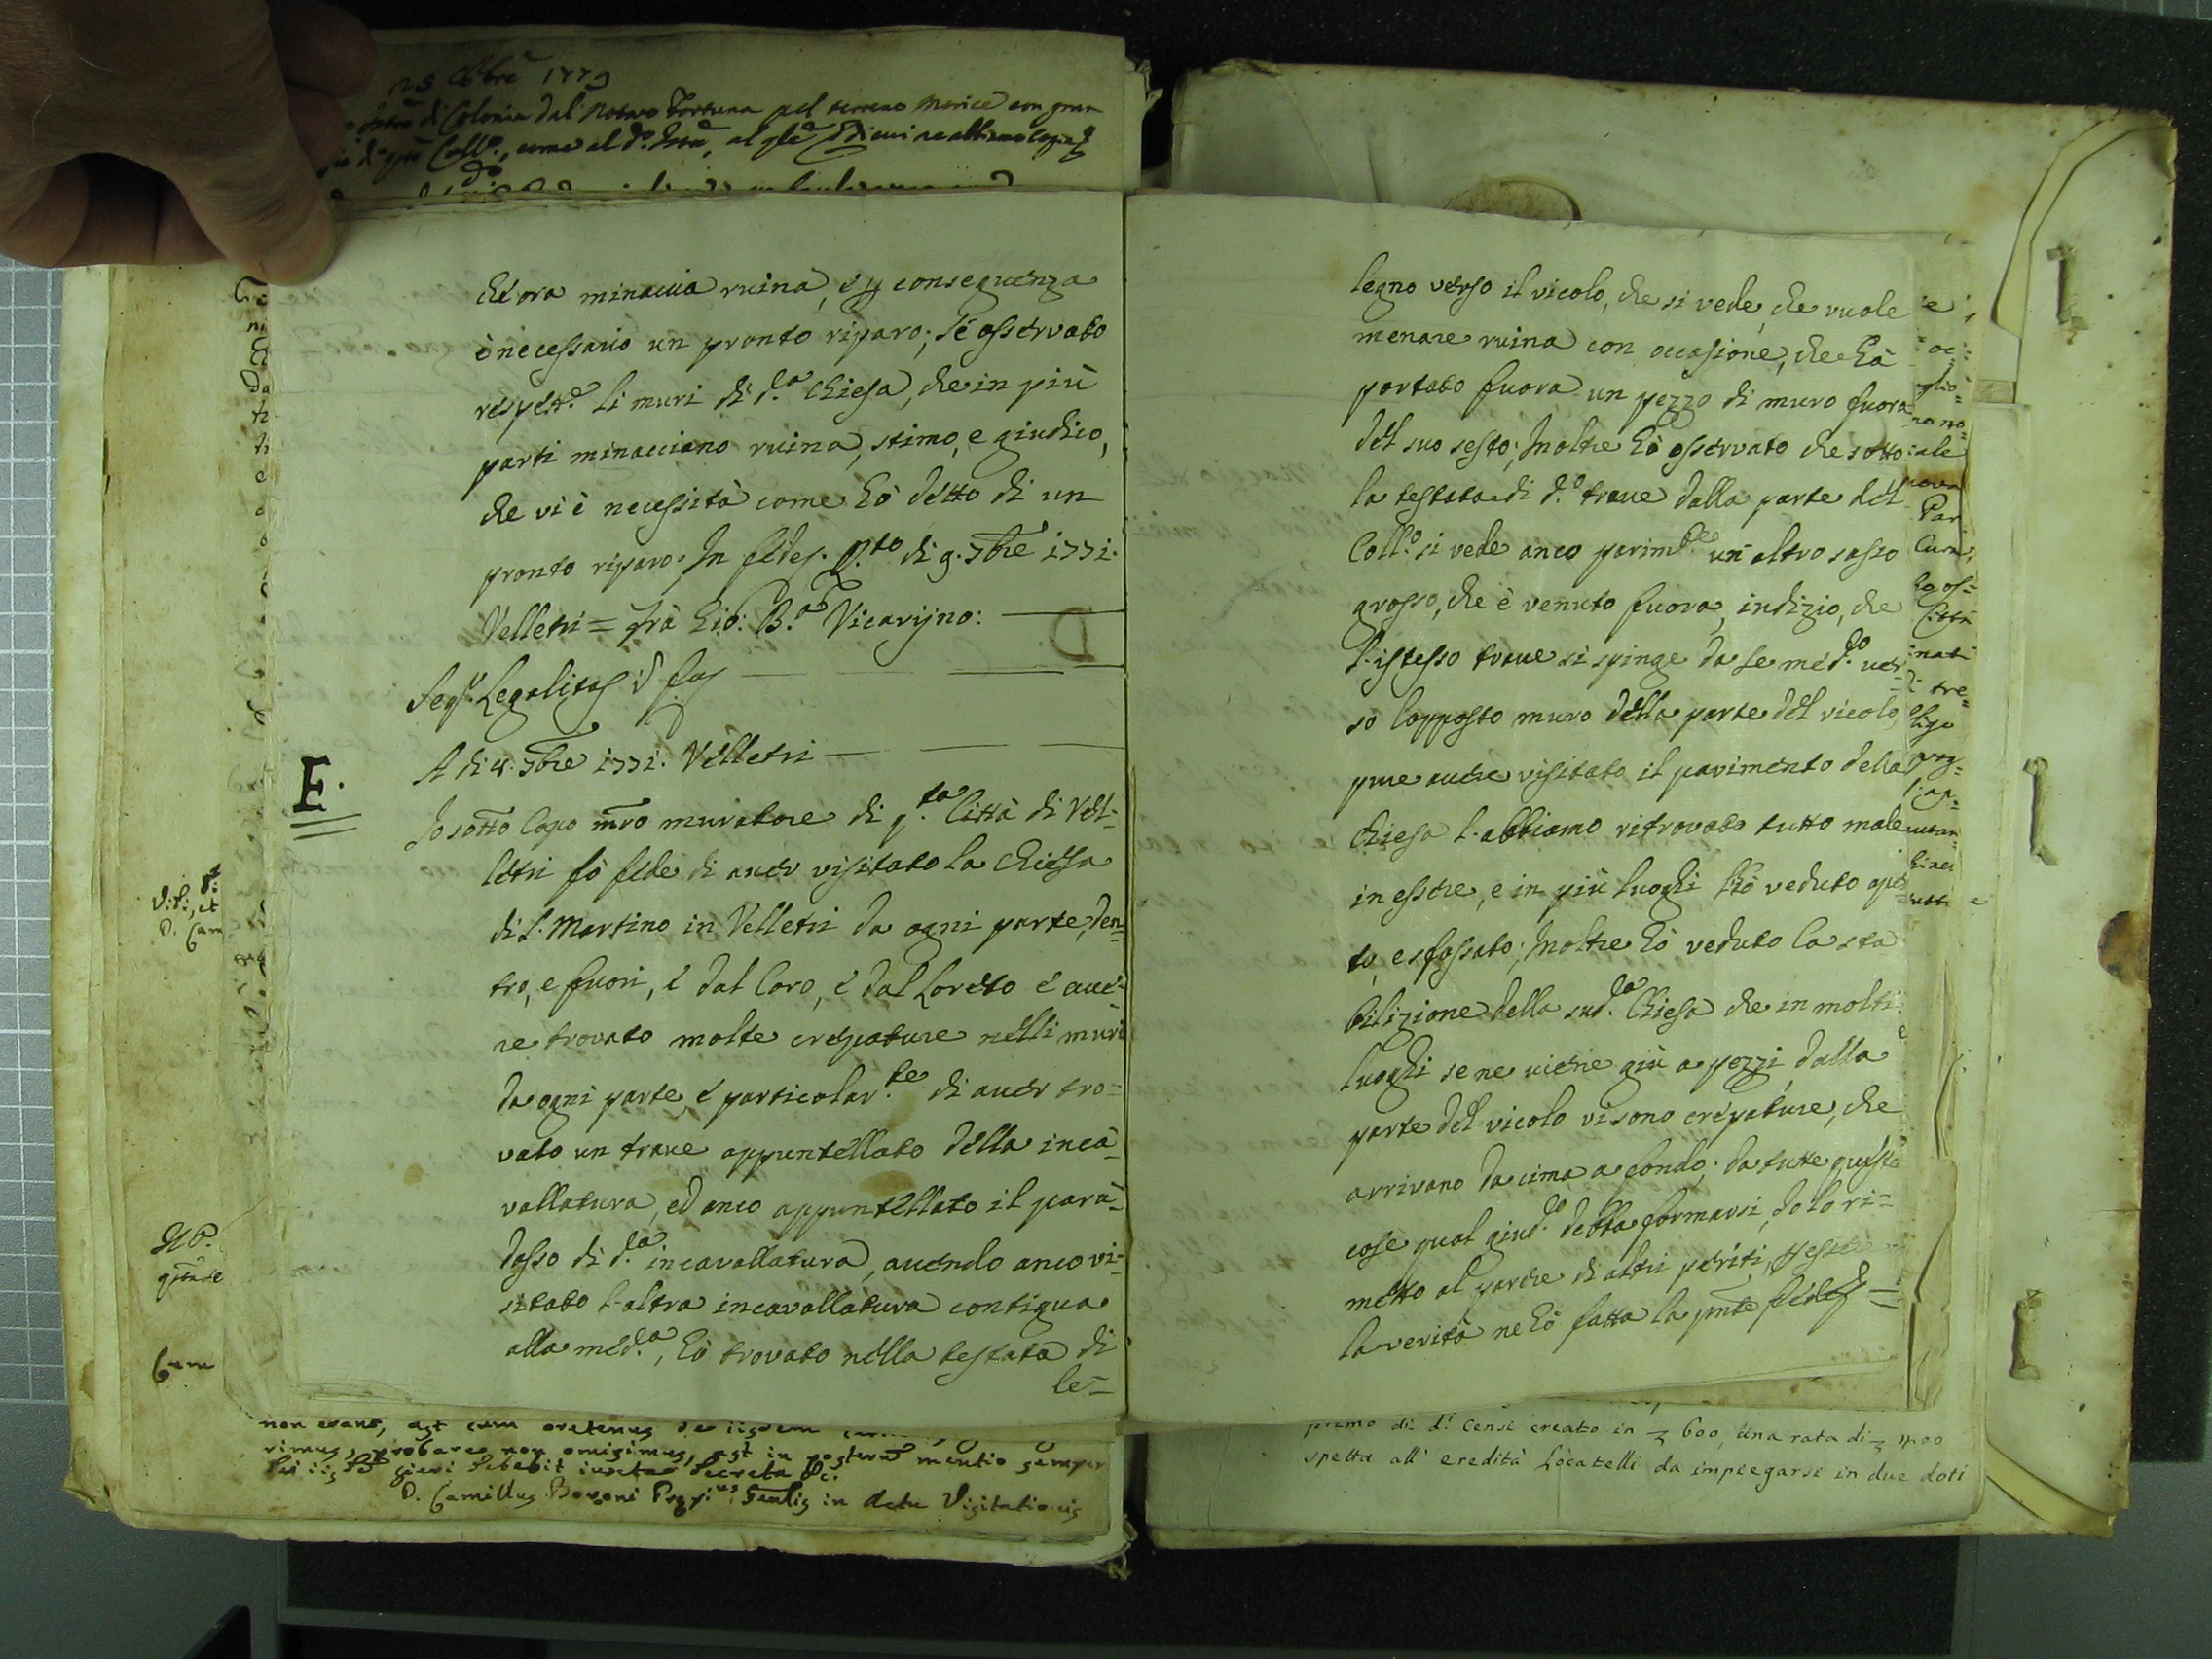 25 1779
di Colonia dal Notaro Fortuna pel terreno
ch'è ora minaccia ruina, e p conseguenza
è necessario un pronto riparo; Sè osservato
respett.e li muri di d.a Chiesa, che in più
parti minacciano ruina, stimo, e giudico,
che vi è necessità come hò detto di un
pronto riparo. In fede di 9. 7bre 1771.
Velletri = frà Gio: B.a Vicarijno:
Seq.r Legalitas
D
E.
A di 4. 7bre 1771. Velletri
Io sotto Capo mro muratore di q.ta Città di Vel-
letri fò fede di aver visitato la Chiesa
di S. Martino in Velletri da ogni parte, den=
tro, e fuori, e dal Coro, e dal Loreto e ave-
re trovato molte crepature nelli muri
da ogni parte, e particolar.te di aver tro=
vato un trave appuntellato della inca-
vallatura, ed anco appuntellato il para-
dosso di d.a incavallatura, avendo anco vi-
sitato l'altra incavallatura contigua
alla med.a, hò trovato nella testata di
le=
legno verso il vicolo, che si vede, che vuole
menare ruina con occasione, che hà
portato fuora un pezzo di muro fuora
del suo sesto; Inoltre hò osservato che sotto
la testata di d.o trave dalla parte del
Coll.o si vede anco parim.te un altro sasso
grosso, che è venuto fuora, indizio, che
l'istesso trave si spinge da se med.o ver=
so l'opposto muro della parte del vicolo,
pure avere visitato il pavimento della
Chiesa l'abbiamo ritrovato tutto male
in essere, e in più luoghi l'hò veduto aper
to, e sfossato; Inoltre hò veduto la sta
bilizione della sud.a Chiesa che in molti
luoghi se ne viene giù a pezzi, dalla
parte del vicolo vi sono crepature, che
arrivano da cima a fondo; da tutte queste
cose qual giud.o debba formarsi, Io lo ri=
metto al parere di altri periti,
la verità ne hò fatta la pnte fede =
non erant, ast cum oretenus de iisdem
rimus, probare non omisimus, ast in posterum mentio semper
fieri debebit iuxta Decreta &c.
D. Camillus Bovoni in Actu Visitationis
primo di d.i Censi creato in 600, una rata di
spetta all' eredità Locatelli da impiegarsi in due doti